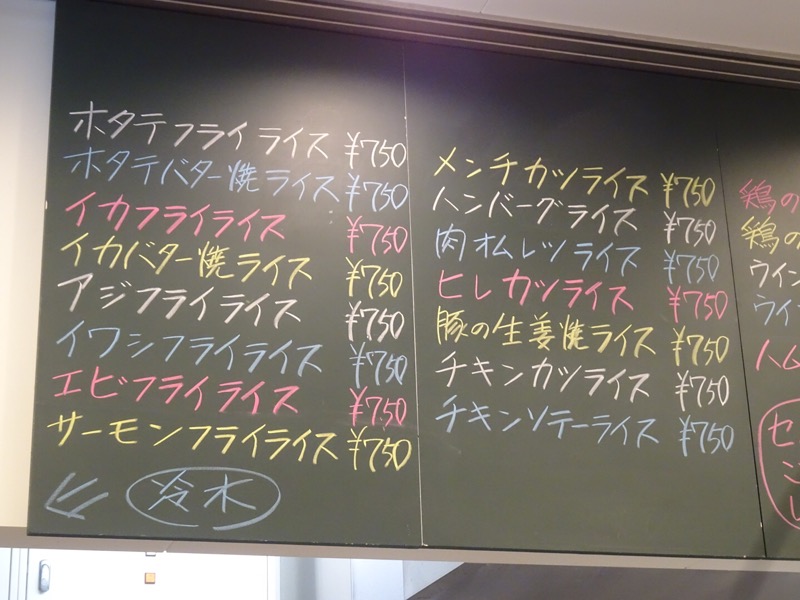 ホタテフライライス ¥750
ホタテバター焼ライス ¥750
イカフライライス ¥750
イカバター焼ライス ¥750
アジフライライス ¥750
イワシフライライス ¥750
エビフライライス ¥750
サーモンフライライス ¥750
冷水
メンチカツライス ¥750
ハンバーグライス ¥750
肉オムレツライス ¥750
ヒレカツライス ¥750
豚の生姜焼ライス ¥750
チキンカツライス ¥750
チキンソテーライス ¥750
鶏の
鶏の
ウイン
ウイ
ハム
セ